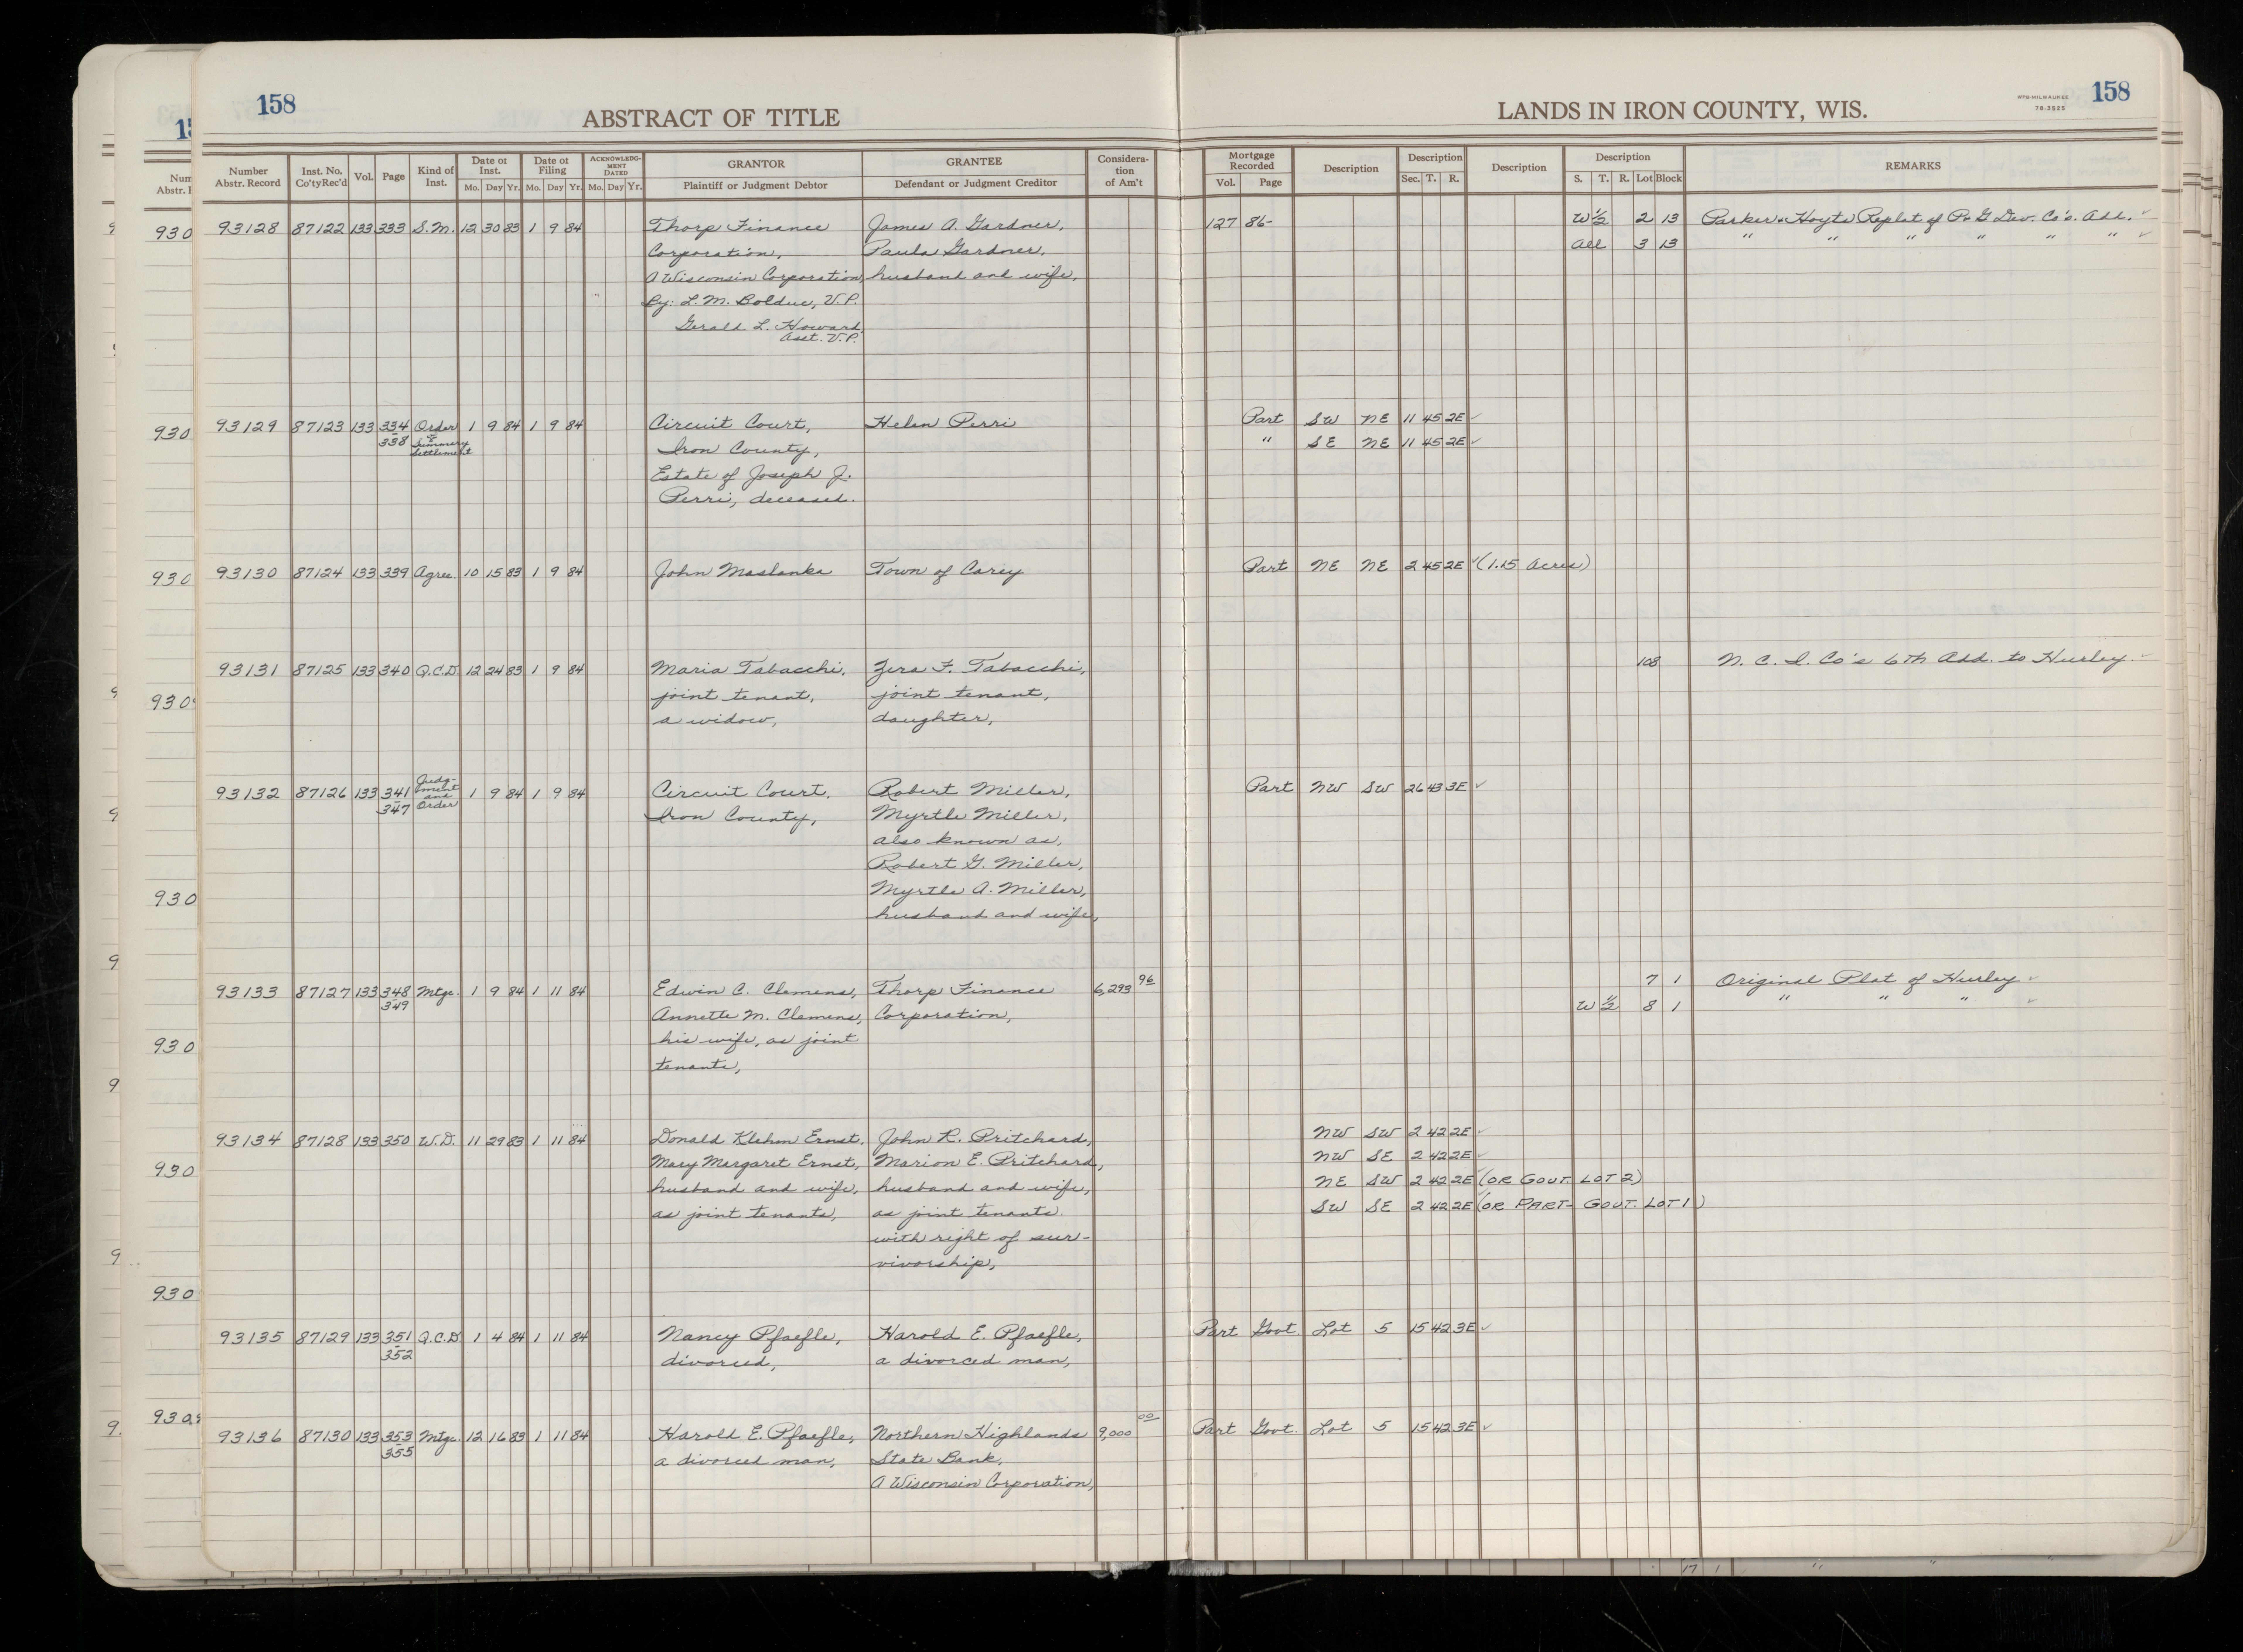 158
ABSTRACT OF TITLE
LANDS IN IRON COUNTY, WIS.
WPB-MILWAUKEE
78-3525
158
Number Abstr. Record | Inst. No. Co'ty Rec'd | Vol. | Page | Kind of Inst. | Date of Inst. Mo. Day Yr. | Date of Filing Mo. Day Yr. | ACKNOWLEDGMENT DATED Mo. Day Yr. | GRANTOR Plaintiff or Judgment Debtor | GRANTEE Defendant or Judgment Creditor | Consideration of Am't | Mortgage Recorded Vol. Page | Description | Description Sec. T. R. | Description | Description S. T. R. Lot Block | REMARKS
93128 87122 133 333 S.M. 12 30 83 1 9 84 Thorp Finance James A. Gardner, 127 86- W½ 2 13 Parker & Hoyts Replat of P. & G. Dev. Co's. Add.
Corporation, Paula Gardner, All 3 13 " " " " " "
A Wisconsin Corporation, husband and wife,
By: L. M. Bolduc, V.P.
Gerald L. Howard
Asst. V.P.
93129 87123 133 334-338 Order of Summary Settlement 1 9 84 1 9 84 Circuit Court, Helen Perri Part SW NE 11 45 2E
Iron County, " SE NE 11 45 2E
Estate of Joseph J.
Perri, deceased.
93130 87124 133 339 Agree. 10 15 83 1 9 84 John Maslanka Town of Carey Part NE NE 2 45 2E (1.15 Acres)
93131 87125 133 340 Q.C.D. 12 24 83 1 9 84 Maria Tabacchi, Zera F. Tabacchi, 108 N. C. I. Co's 6th Add. to Hurley
joint tenant, joint tenant,
a widow, daughter,
93132 87126 133 341-347 Judgment and Order 1 9 84 1 9 84 Circuit Court, Robert Miller, Part NW SW 26 43 3E
Iron County, Myrtle Miller,
also known as,
Robert G. Miller,
Myrtle A. Miller,
husband and wife,
93133 87127 133 348-349 Mtge. 1 9 84 1 11 84 Edwin C. Clemens, Thorp Finance 6,293 96 7 1 Original Plat of Hurley
Annette M. Clemens, Corporation, W½ 8 1 " " "
his wife, as joint
tenants,
93134 87128 133 350 W.D. 11 29 83 1 11 84 Donald Klehm Ernst, John R. Pritchard, NW SW 2 42 2E
Mary Margaret Ernst, Marion E. Pritchard, NW SE 2 42 2E
husband and wife, husband and wife, NE SW 2 42 2E (OR GOVT. LOT 2)
as joint tenants, as joint tenants SW SE 2 42 2E (OR PART- GOVT. LOT 1)
with right of sur-
vivorship,
93135 87129 133 351-352 Q.C.D. 1 4 84 1 11 84 Nancy Pfaefle, Harold E. Pfaefle, Part Govt. Lot 5 15 42 3E
divorced, a divorced man,
93136 87130 133 353-355 Mtge. 12 16 83 1 11 84 Harold E. Pfaefle, Northern Highlands 9,000 00 Part Govt. Lot 5 15 42 3E
a divorced man, State Bank,
A Wisconsin Corporation,